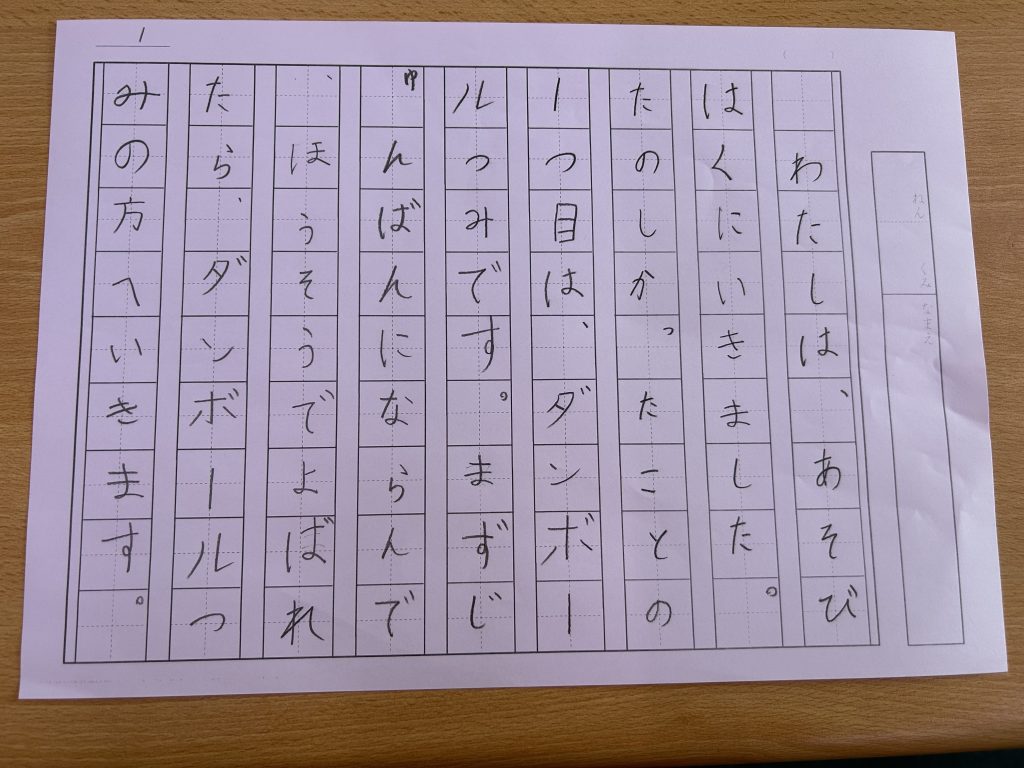 ねん くみ なまえ
わたしは、あそび
はくにいきました。
たのしかったことの
一つ目は、ダンボー
ルつみです。まずじ
ゅんばんにならんで
、ほうそうでよばれ
たら、ダンボールつ
みの方へいきます。
1